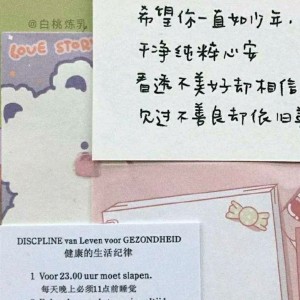 @白桃炼乳
LOVE STORY
希望你一直如少年,
干净纯粹心安
看透不美好却相信
见过不善良却依旧
DISCPLINE van Leven voor GEZONDHEID
健康的生活纪律
1 Voor 23.00 uur moet slapen.
每天晚上必须11点前睡觉